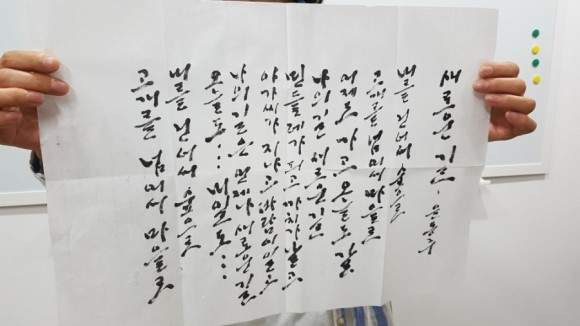 새로운 길 - 윤동주
내를 건너서 숲으로
고개를 넘어서 마을로
어제도 가고 오늘도 갈
나의 길 새로운 길
민들레가 피고 까치가 날고
아가씨가 지나고 바람이 일고
나의 길은 언제나 새로운 길
오늘도…… 내일도……
내를 건너서 숲으로
고개를 넘어서 마을로